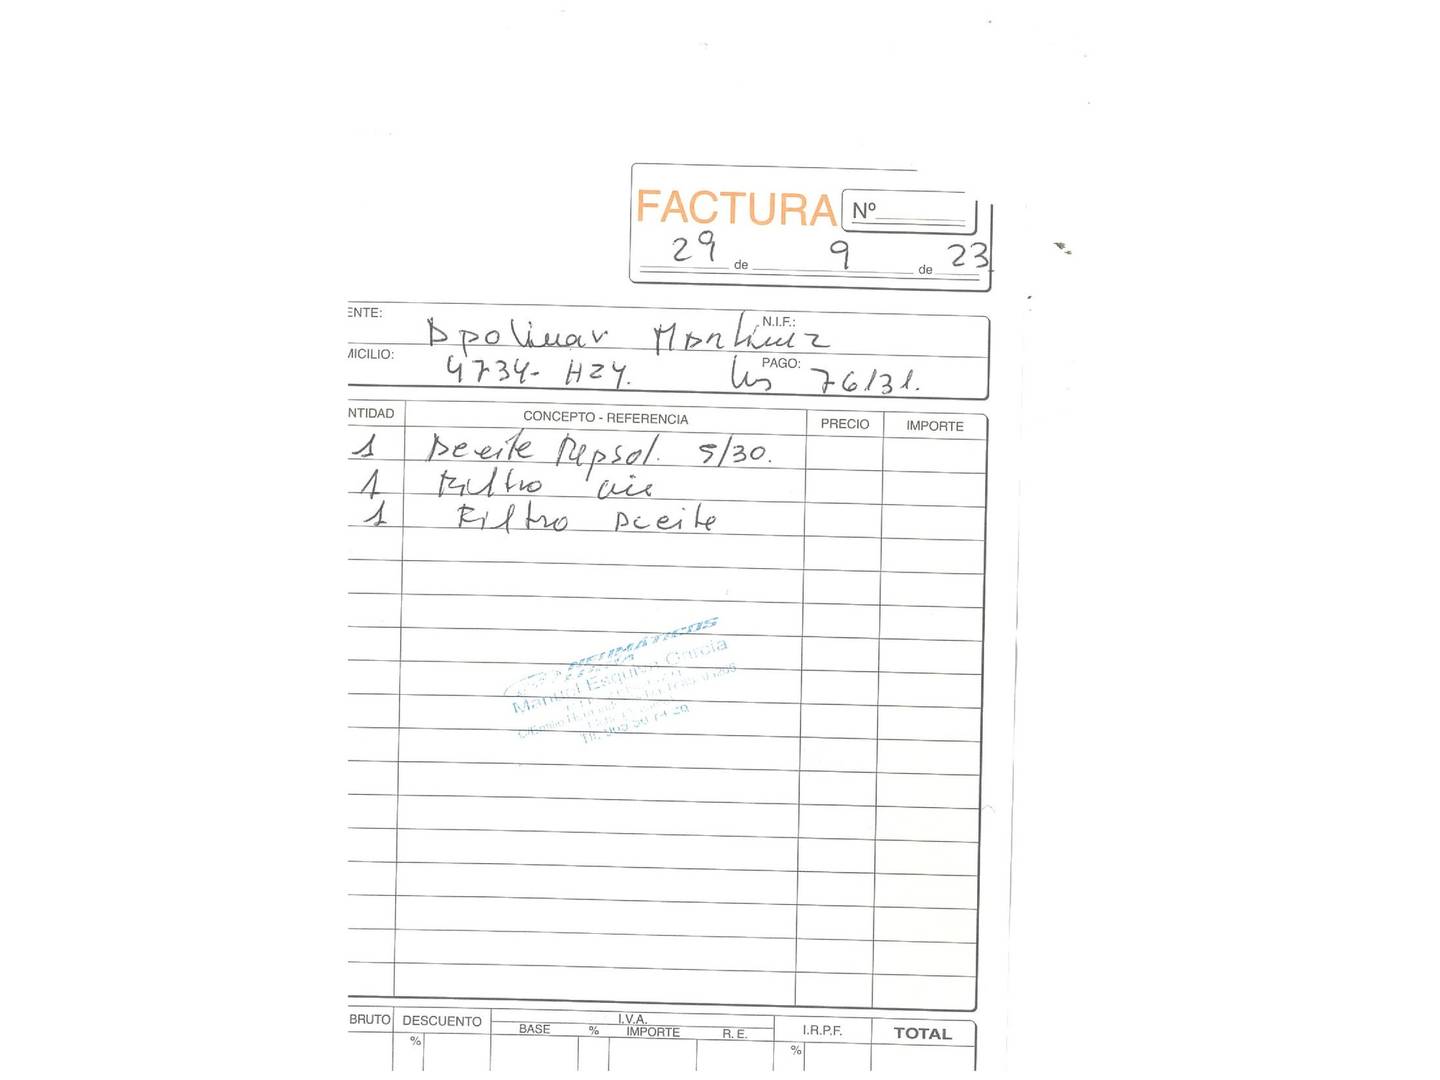 FACTURA Nº
29 de 9 de 23
ENTE: Apolinar Martinez N.I.F.:
MICILIO: 4734-HZY. PAGO: 76131.
NTIDAD CONCEPTO - REFERENCIA PRECIO IMPORTE
1 Aceite Repsol. 5/30.
1 Filtro aire
1 Filtro Aceite
NEUMATICOS
Manuel Esquiva Garcia
BRUTO DESCUENTO I.V.A. I.R.P.F. TOTAL
% BASE % IMPORTE R. E. %